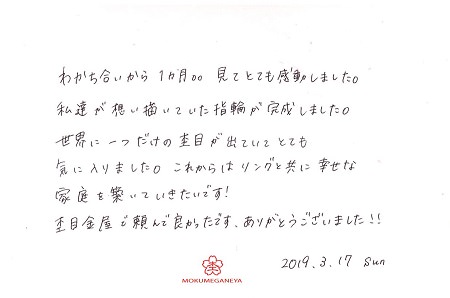 わかち合いから 1カ月。。 見てとても感動しました。
私達が想い描いていた指輪が完成しました。
世界に一つだけの杢目が出ていてとても
気に入りました。これからはリングと共に幸せな
家庭を築いていきたいです!
杢目金屋で頼んで良かったです、ありがとうございました!!
2019.3.17 Sun
MOKUMEGANEYA